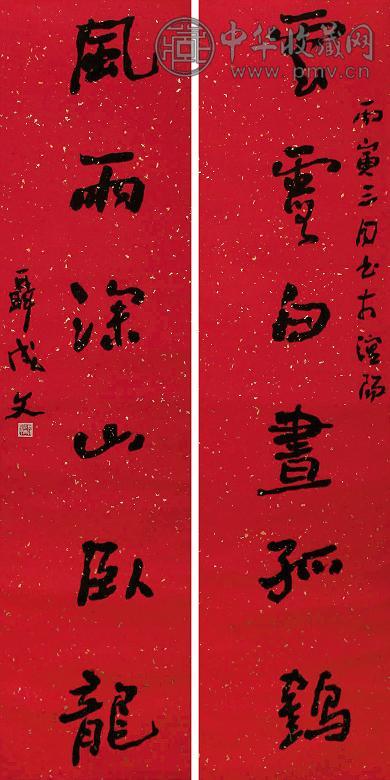 中华收藏网
www.pmv.cn
丙寅三月書於瀋陽
雲霄白晝孤鶴
風雨深山臥龍
聶成文